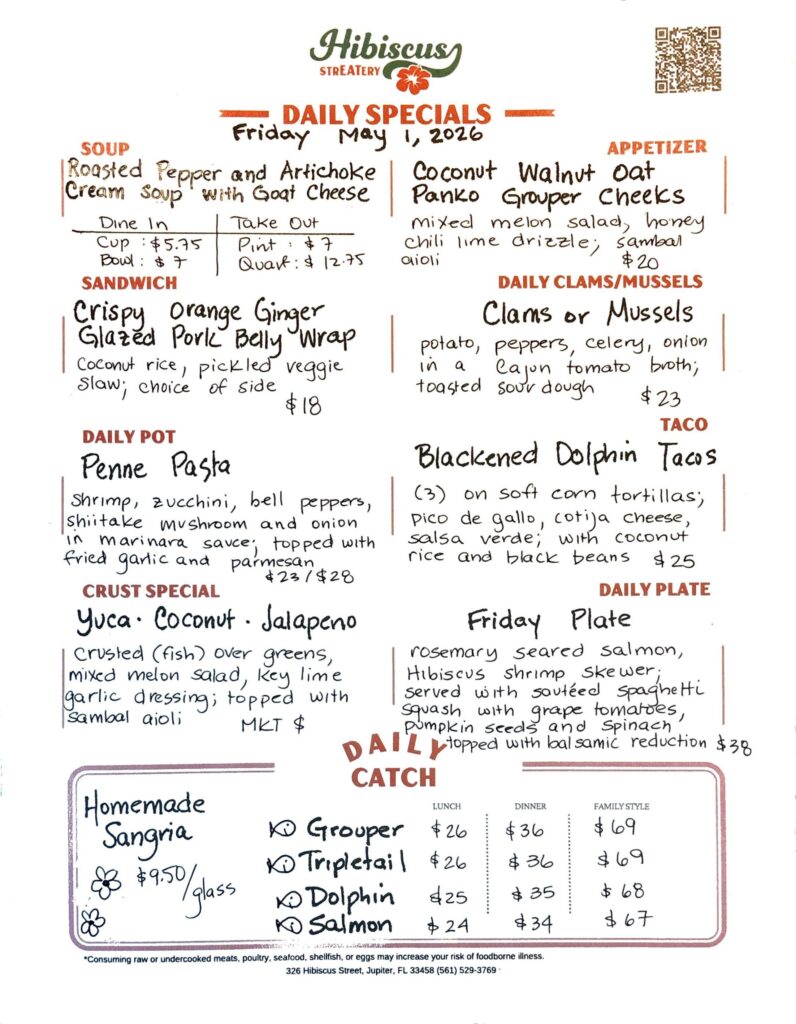 Hibiscus
STREATERY
DAILY SPECIALS
Friday May 1, 2026
SOUP
Roasted Pepper and Artichoke
Cream Soup with Goat Cheese
Dine In Take Out
Cup : $5.75 Pint : $7
Bowl : $7 Quart : $12.75
APPETIZER
Coconut Walnut Oat
Panko Grouper Cheeks
mixed melon salad, honey
chili lime drizzle; sambal
aioli $20
SANDWICH
Crispy Orange Ginger
Glazed Pork Belly Wrap
coconut rice, pickled veggie
slaw; choice of side
$18
DAILY CLAMS/MUSSELS
Clams or Mussels
potato, peppers, celery, onion
in a Cajun tomato broth;
toasted sourdough $23
DAILY POT
Penne Pasta
Shrimp, zucchini, bell peppers,
shiitake mushroom and onion
in marinara sauce; topped with
fried garlic and parmesan
$23/$28
TACO
Blackened Dolphin Tacos
(3) on soft corn tortillas;
pico de gallo, cotija cheese,
salsa verde; with coconut
rice and black beans $25
CRUST SPECIAL
Yuca · Coconut · Jalapeno
Crusted (fish) over greens,
mixed melon salad, key lime
garlic dressing; topped with
sambal aioli MKT $
DAILY PLATE
Friday Plate
rosemary seared salmon,
Hibiscus shrimp skewer;
served with sautéed spaghetti
squash with grape tomatoes,
pumpkin seeds and spinach
topped with balsamic reduction $38
DAILY
CATCH
Homemade
Sangria
$9.50/glass
LUNCH DINNER FAMILY STYLE
Grouper $26 $36 $69
Tripletail $26 $36 $69
Dolphin $25 $35 $68
Salmon $24 $34 $67
*Consuming raw or undercooked meats, poultry, seafood, shellfish, or eggs may increase your risk of foodborne illness.
326 Hibiscus Street, Jupiter, FL 33458 (561) 529-3769